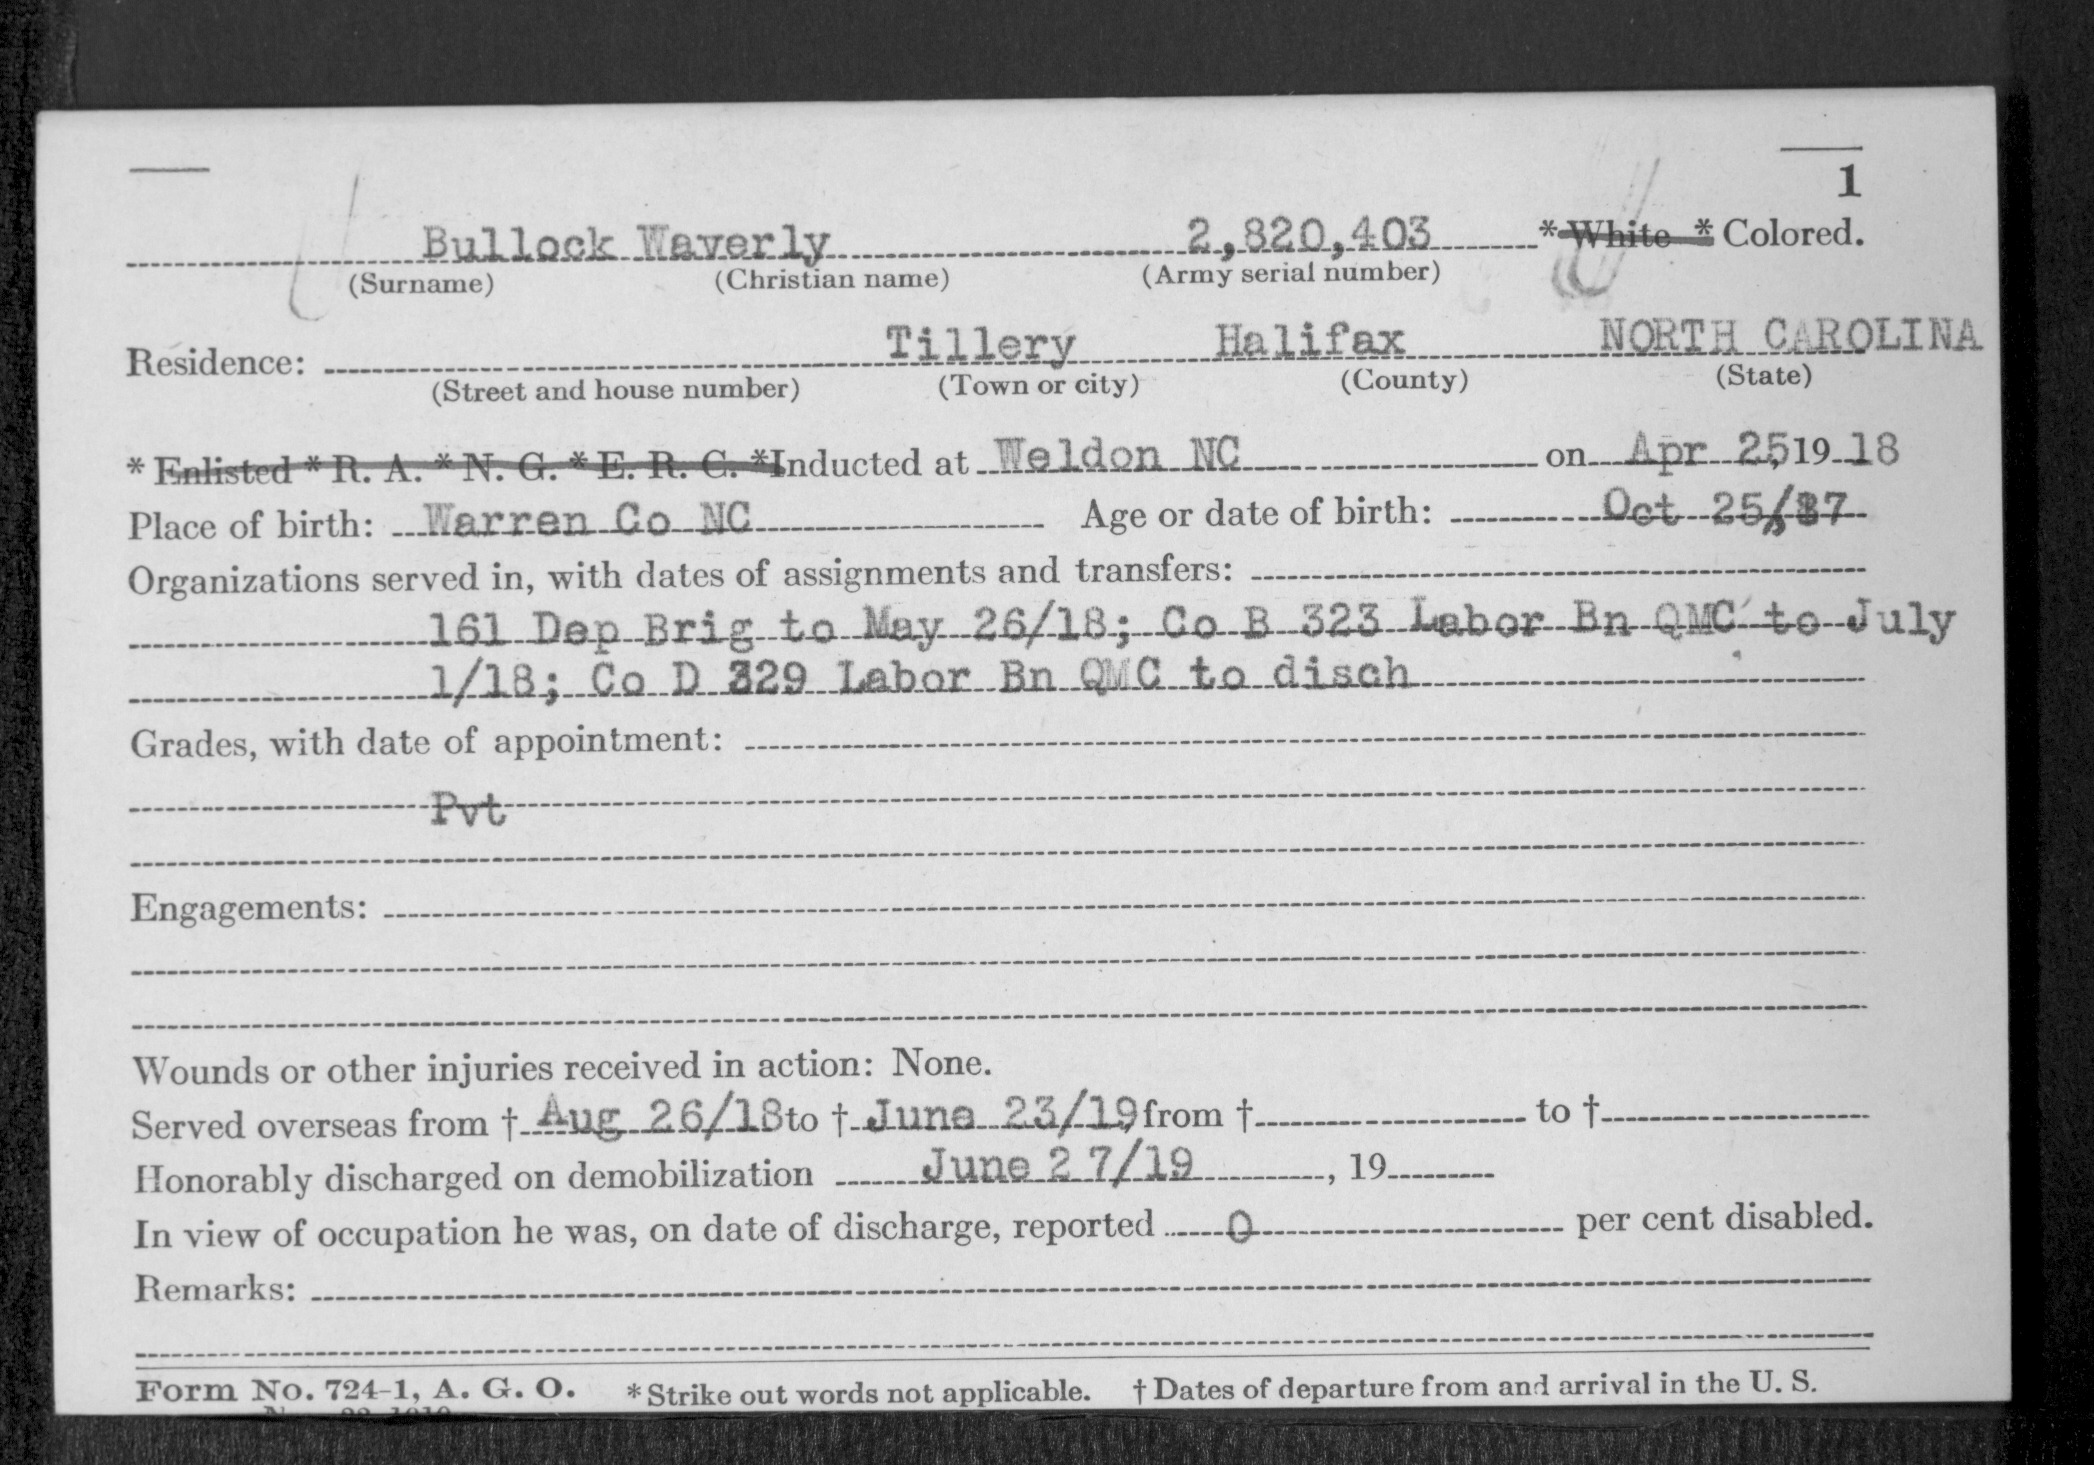 1
Bullock Waverly 2,820,403 * White * Colored.
(Surname) (Christian name) (Army serial number)
Residence: Tillery Halifax NORTH CAROLINA
(Street and house number) (Town or city) (County) (State)
* Enlisted * R. A. * N. G. * E. R. C. *Inducted at Weldon NC on Apr 25, 19 18
Place of birth: Warren Co NC Age or date of birth: Oct 25/87
Organizations served in, with dates of assignments and transfers:
161 Dep Brig to May 26/18; Co B 323 Labor Bn QMC to July
1/18; Co D 329 Labor Bn QMC to disch
Grades, with date of appointment:
Pvt
Engagements:
Wounds or other injuries received in action: None.
Served overseas from † Aug 26/18 to † June 23/19, from † to †
Honorably discharged on demobilization June 27/19, 19
In view of occupation he was, on date of discharge, reported 0 per cent disabled.
Remarks:
Form No. 724-1, A. G. O. * Strike out words not applicable. † Dates of departure from and arrival in the U. S.